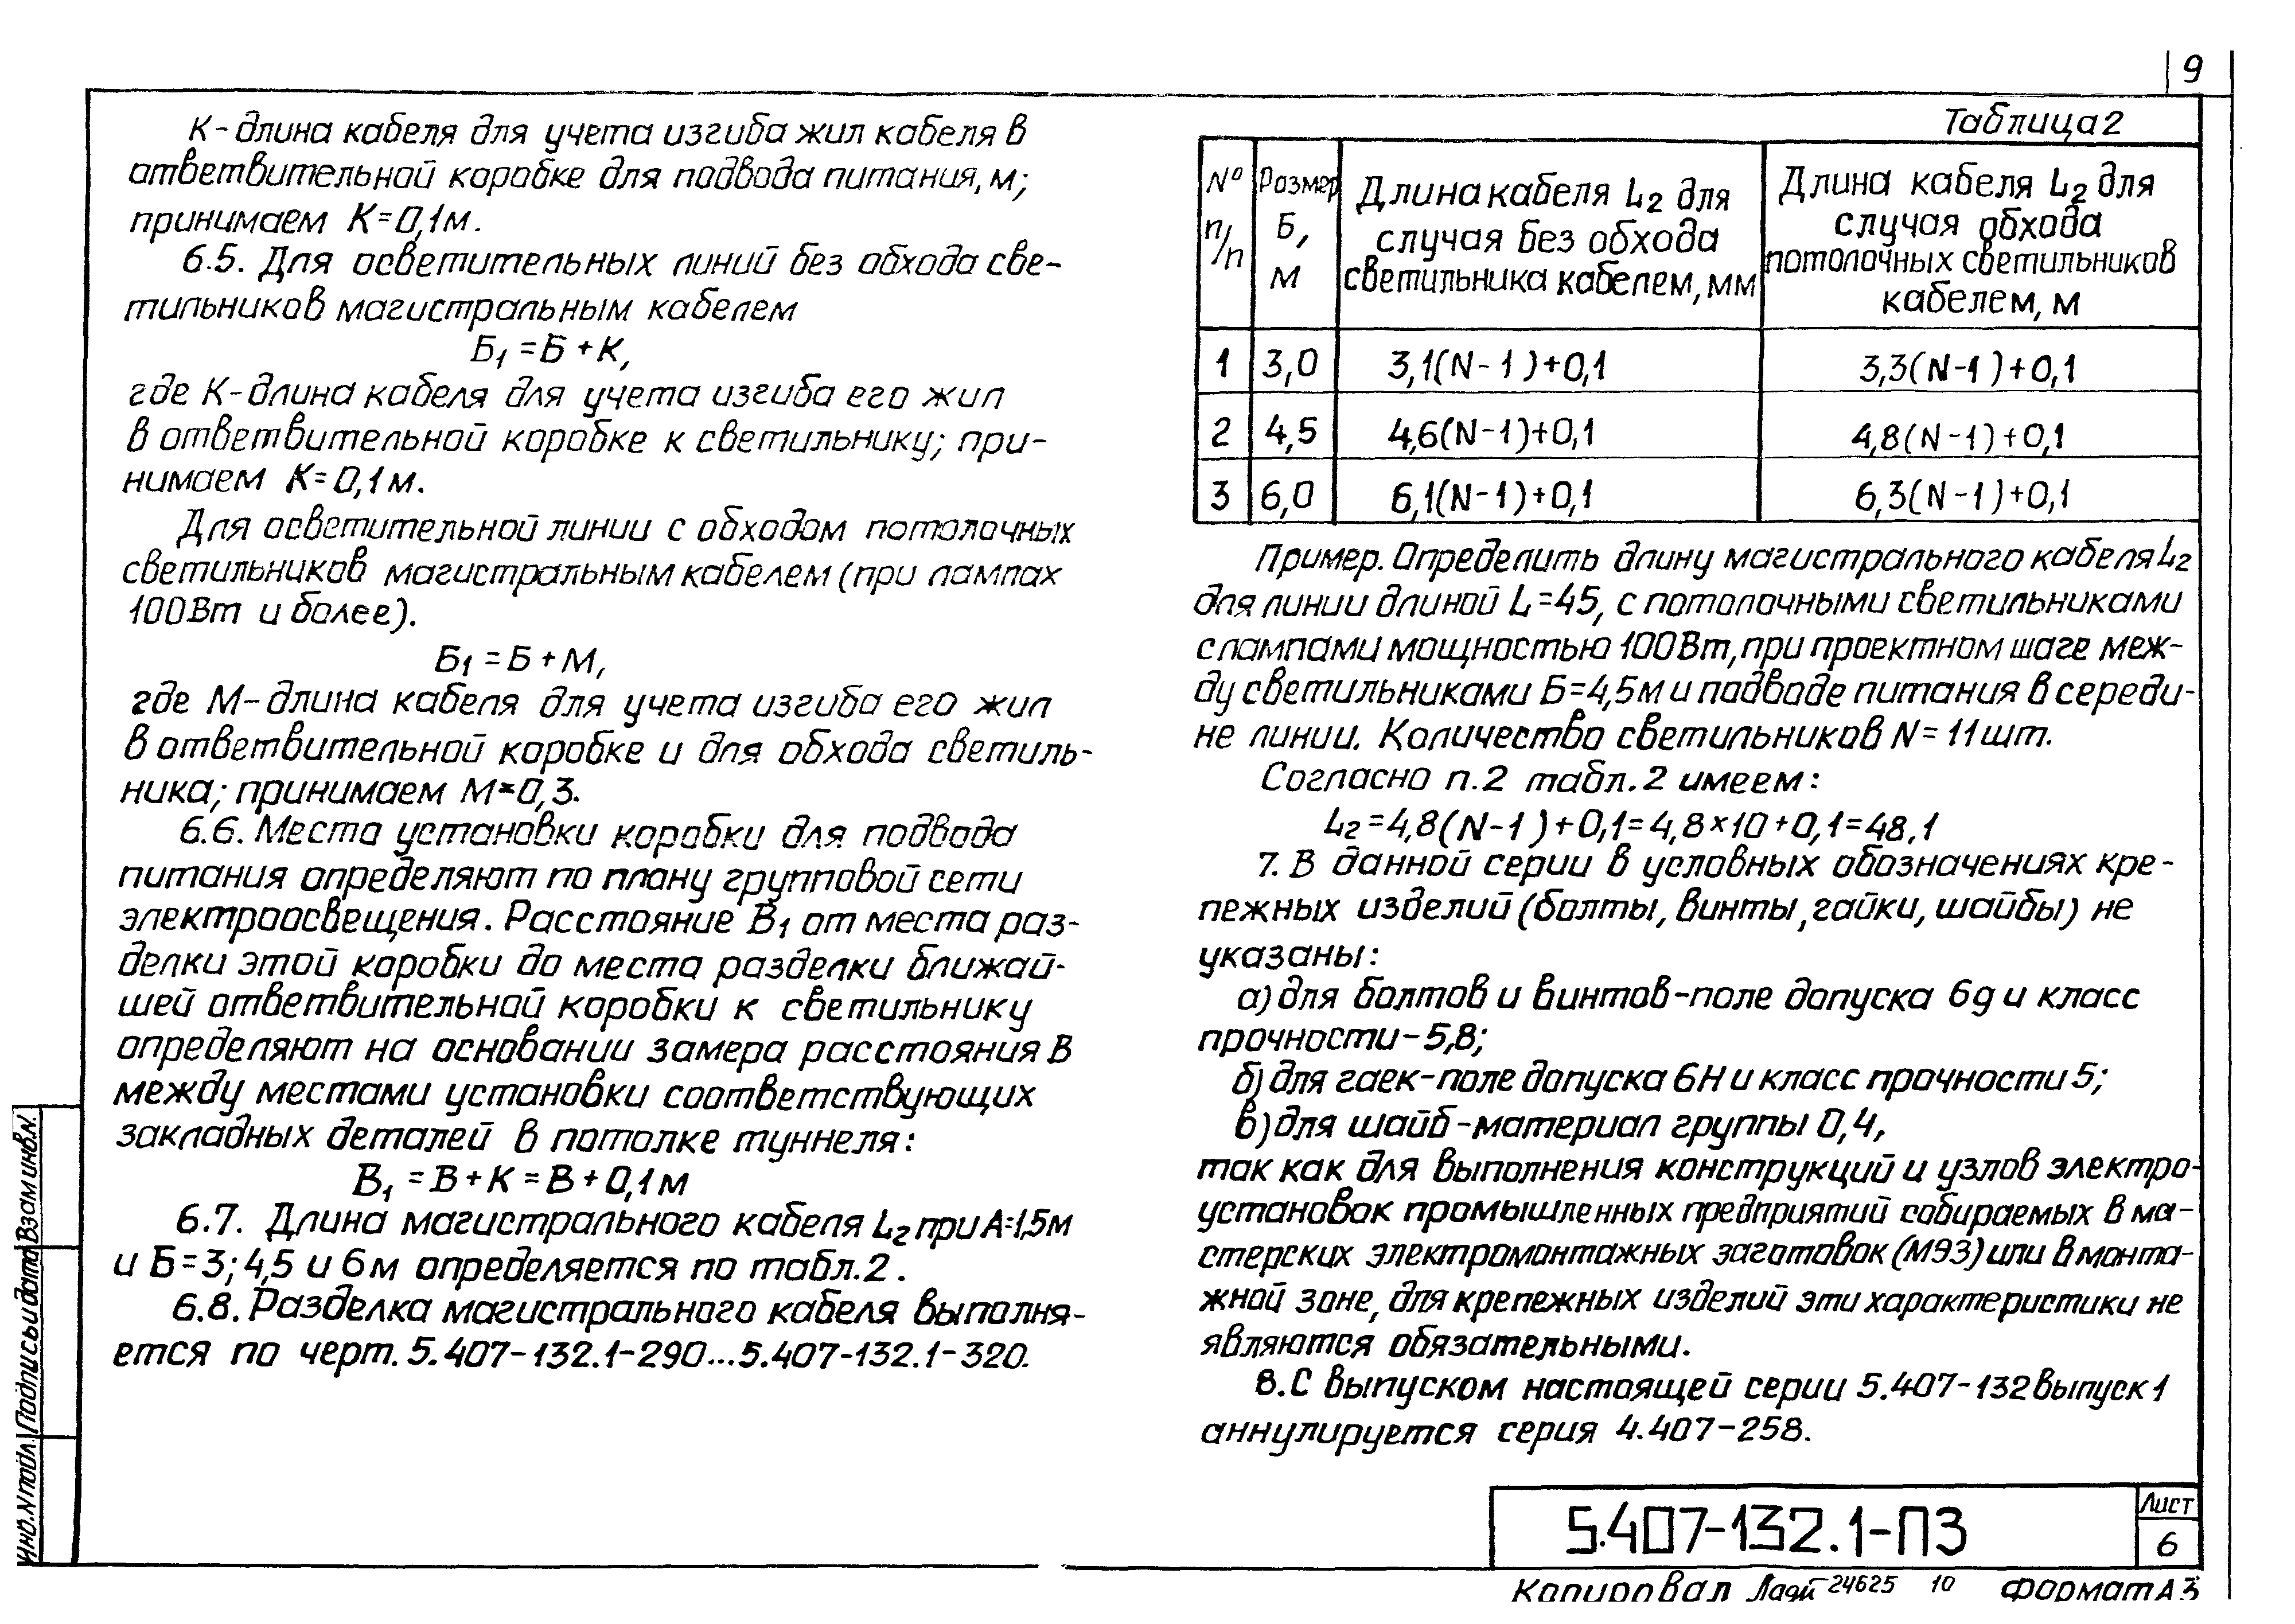 9
К-длина кабеля для учета изгиба жил кабеля в
ответвительной коробке для подвода питания, м;
принимаем К=0,1м.
6.5. Для осветительных линий без обхода све-
тильников магистральным кабелем
Б₁ = Б + К,
где К-длина кабеля для учета изгиба его жил
в ответвительной коробке к светильнику; при-
нимаем К=0,1м.
Для осветительной линии с обходом потолочных
светильников магистральным кабелем (при лампах
100Вт и более).
Б₁ = Б + М,
где М-длина кабеля для учета изгиба его жил
в ответвительной коробке и для обхода светиль-
ника; принимаем М=0,3.
6.6. Место установки коробки для подвода
питания определяют по плану групповой сети
электроосвещения. Расстояние В₁ от места раз-
делки этой коробки до места разделки ближай-
шей ответвительной коробки к светильнику
определяют на основании замера расстояния В
между местами установки соответствующих
закладных деталей в потолке туннеля:
В₁ = В + К = В + 0,1м
6.7. Длина магистрального кабеля L₂ при А=1,5м
и Б=3; 4,5 и 6м определяется по табл. 2.
6.8. Разделка магистрального кабеля выполня-
ется по черт. 5.407-132.1-290...5.407-132.1-320.
Таблица 2
№ п/п | Размер Б, м | Длина кабеля L₂ для случая без обхода светильника кабелем, мм | Длина кабеля L₂ для случая обхода потолочных светильников кабелем, м
1 | 3,0 | 3,1(N-1)+0,1 | 3,3(N-1)+0,1
2 | 4,5 | 4,6(N-1)+0,1 | 4,8(N-1)+0,1
3 | 6,0 | 6,1(N-1)+0,1 | 6,3(N-1)+0,1
Пример. Определить длину магистрального кабеля L₂
для линии длиной L=45, с потолочными светильниками
с лампами мощностью 100Вт, при проектном шаге меж-
ду светильниками Б=4,5м и подводе питания в середи-
не линии. Количество светильников N=11шт.
Согласно п.2 табл. 2 имеем:
L₂=4,8(N-1)+0,1=4,8×10+0,1=48,1
7. В данной серии в условных обозначениях кре-
пежных изделий (болты, винты, гайки, шайбы) не
указаны:
а) для болтов и винтов-поле допуска 6g и класс
прочности-5,8;
б) для гаек-поле допуска 6Н и класс прочности 5;
в) для шайб-материал группы 0,4,
так как для выполнения конструкций и узлов электро-
установок промышленных предприятий собираемых в ма-
стерских электромонтажных заготовок (МЭЗ) или в монта-
жной зоне, для крепежных изделий эти характеристики не
являются обязательными.
8. С выпуском настоящей серии 5.407-132 выпуск 1
аннулируется серия 4.407-258.
Взам инв.N.
Подпись и дата
Инв.N подл.
5.407-132.1-ПЗ
Лист
6
Копировал
24625 10
Формат А3